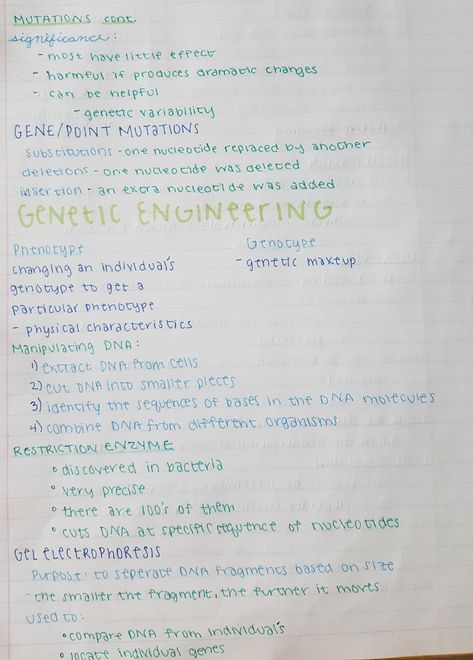 MUTATIONS cont.
significance:
- most have little effect
- harmful if produces dramatic changes
- can be helpful
- genetic variability
GENE/POINT MUTATIONS
substitutions - one nucleotide replaced by another
deletions - one nucleotide was deleted
insertion - an extra nucleotide was added
GENETIC ENGINEERING
Phenotype
changing an individual's
genotype to get a
particular phenotype
- physical characteristics
Genotype
- genetic makeup
Manipulating DNA:
1) extract DNA from cells
2) cut DNA into smaller pieces
3) identify the sequences of bases in the DNA molecules
4) combine DNA from different organisms
RESTRICTION ENZYME
• discovered in bacteria
• very precise
• there are 100's of them
• cuts DNA at specific sequence of nucleotides
GEL ELECTROPHORESIS
Purpose: to seperate DNA fragments based on size
- the smaller the fragment, the further it moves
used to:
• compare DNA from individual's
• locate individual genes